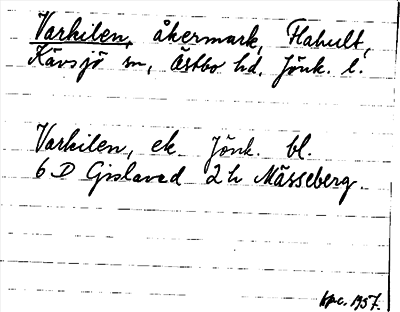 Varkilen, åkermark, Flahult,
Kävsjö sn, Östbo hd. Jönk. l.
Varkilen, ek Jönk. bl.
6 D Gislaved 2 h Mässeberg.
1957.